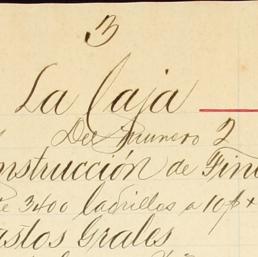 3
La Caja
Del numero 2
nstrucción de Fin
e 3400 ladrillos a 10
astos Grales